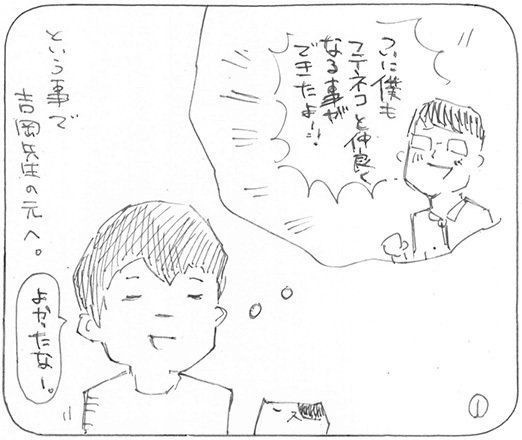 ついに僕も
フデネコと仲良く
なる事が
できたよー!!
という事で
吉岡先生の元へ。
よかったなー。
1